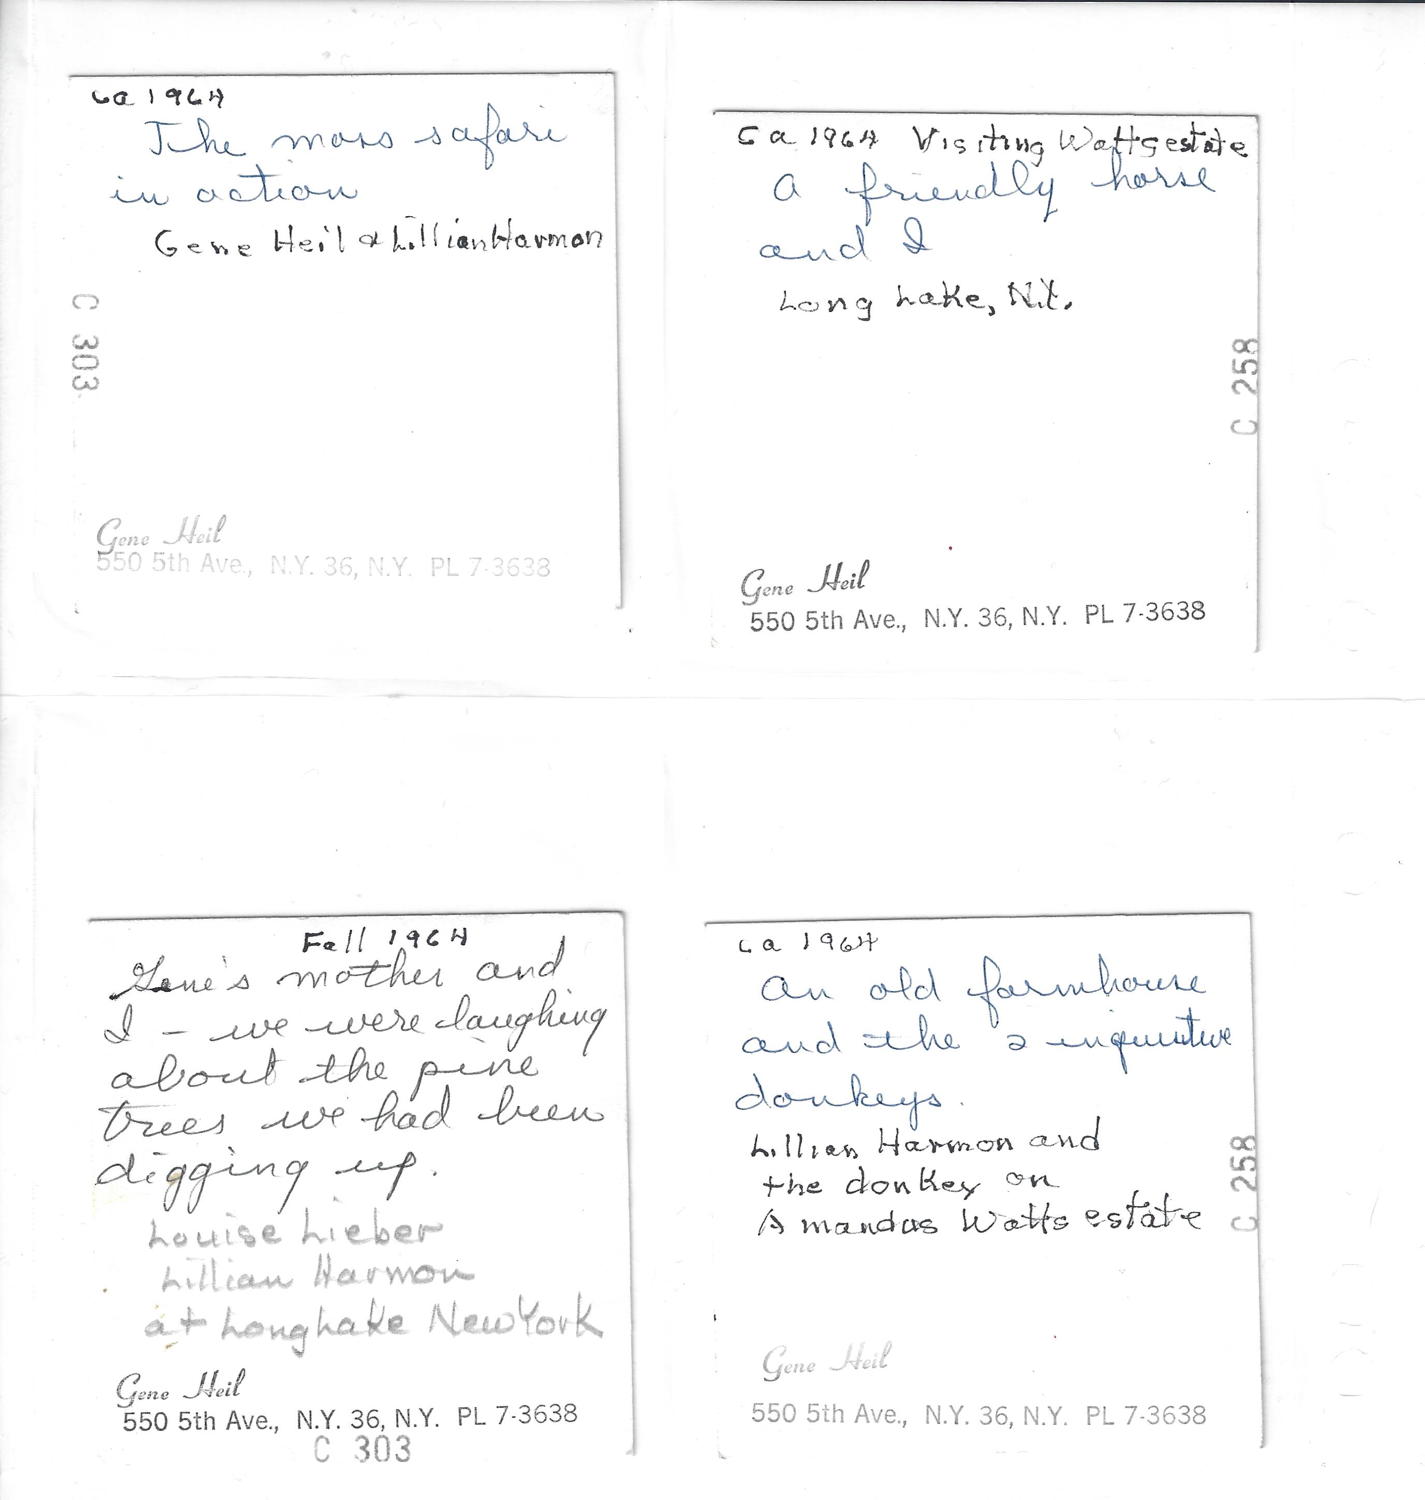 ca 1964
The moss safari
in action
Gene Heil & Lillian Harmon
C 303
Gene Heil
550 5th Ave., N.Y. 36, N.Y. PL 7-3638
Ca 1964 Visiting Watts estate
A friendly horse
and I
Long Lake, N.Y.
C 258
Gene Heil
550 5th Ave., N.Y. 36, N.Y. PL 7-3638
Fall 1964
Gene's mother and
I - we were laughing
about the pine
trees we had been
digging up.
Louise Lieber
Lillian Harmon
at Long Lake New York
Gene Heil
550 5th Ave., N.Y. 36, N.Y. PL 7-3638
C 303
ca 1964
An old farmhouse
and the 2 inquisitive
donkeys.
Lillian Harmon and
the donkey on
Amandas Watts estate
C 258
Gene Heil
550 5th Ave., N.Y. 36, N.Y. PL 7-3638